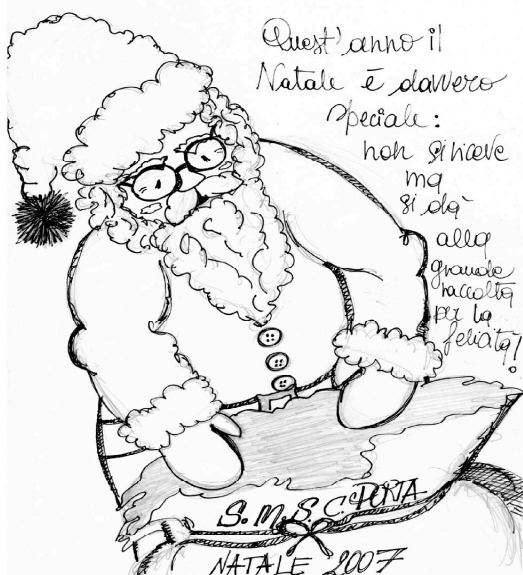 Quest'anno il
Natale è davvero
speciale:
non si riceve
ma
si dà
alla
grande
raccolta
per la
felicità!
S.M.S. C. PORTA
NATALE 2007